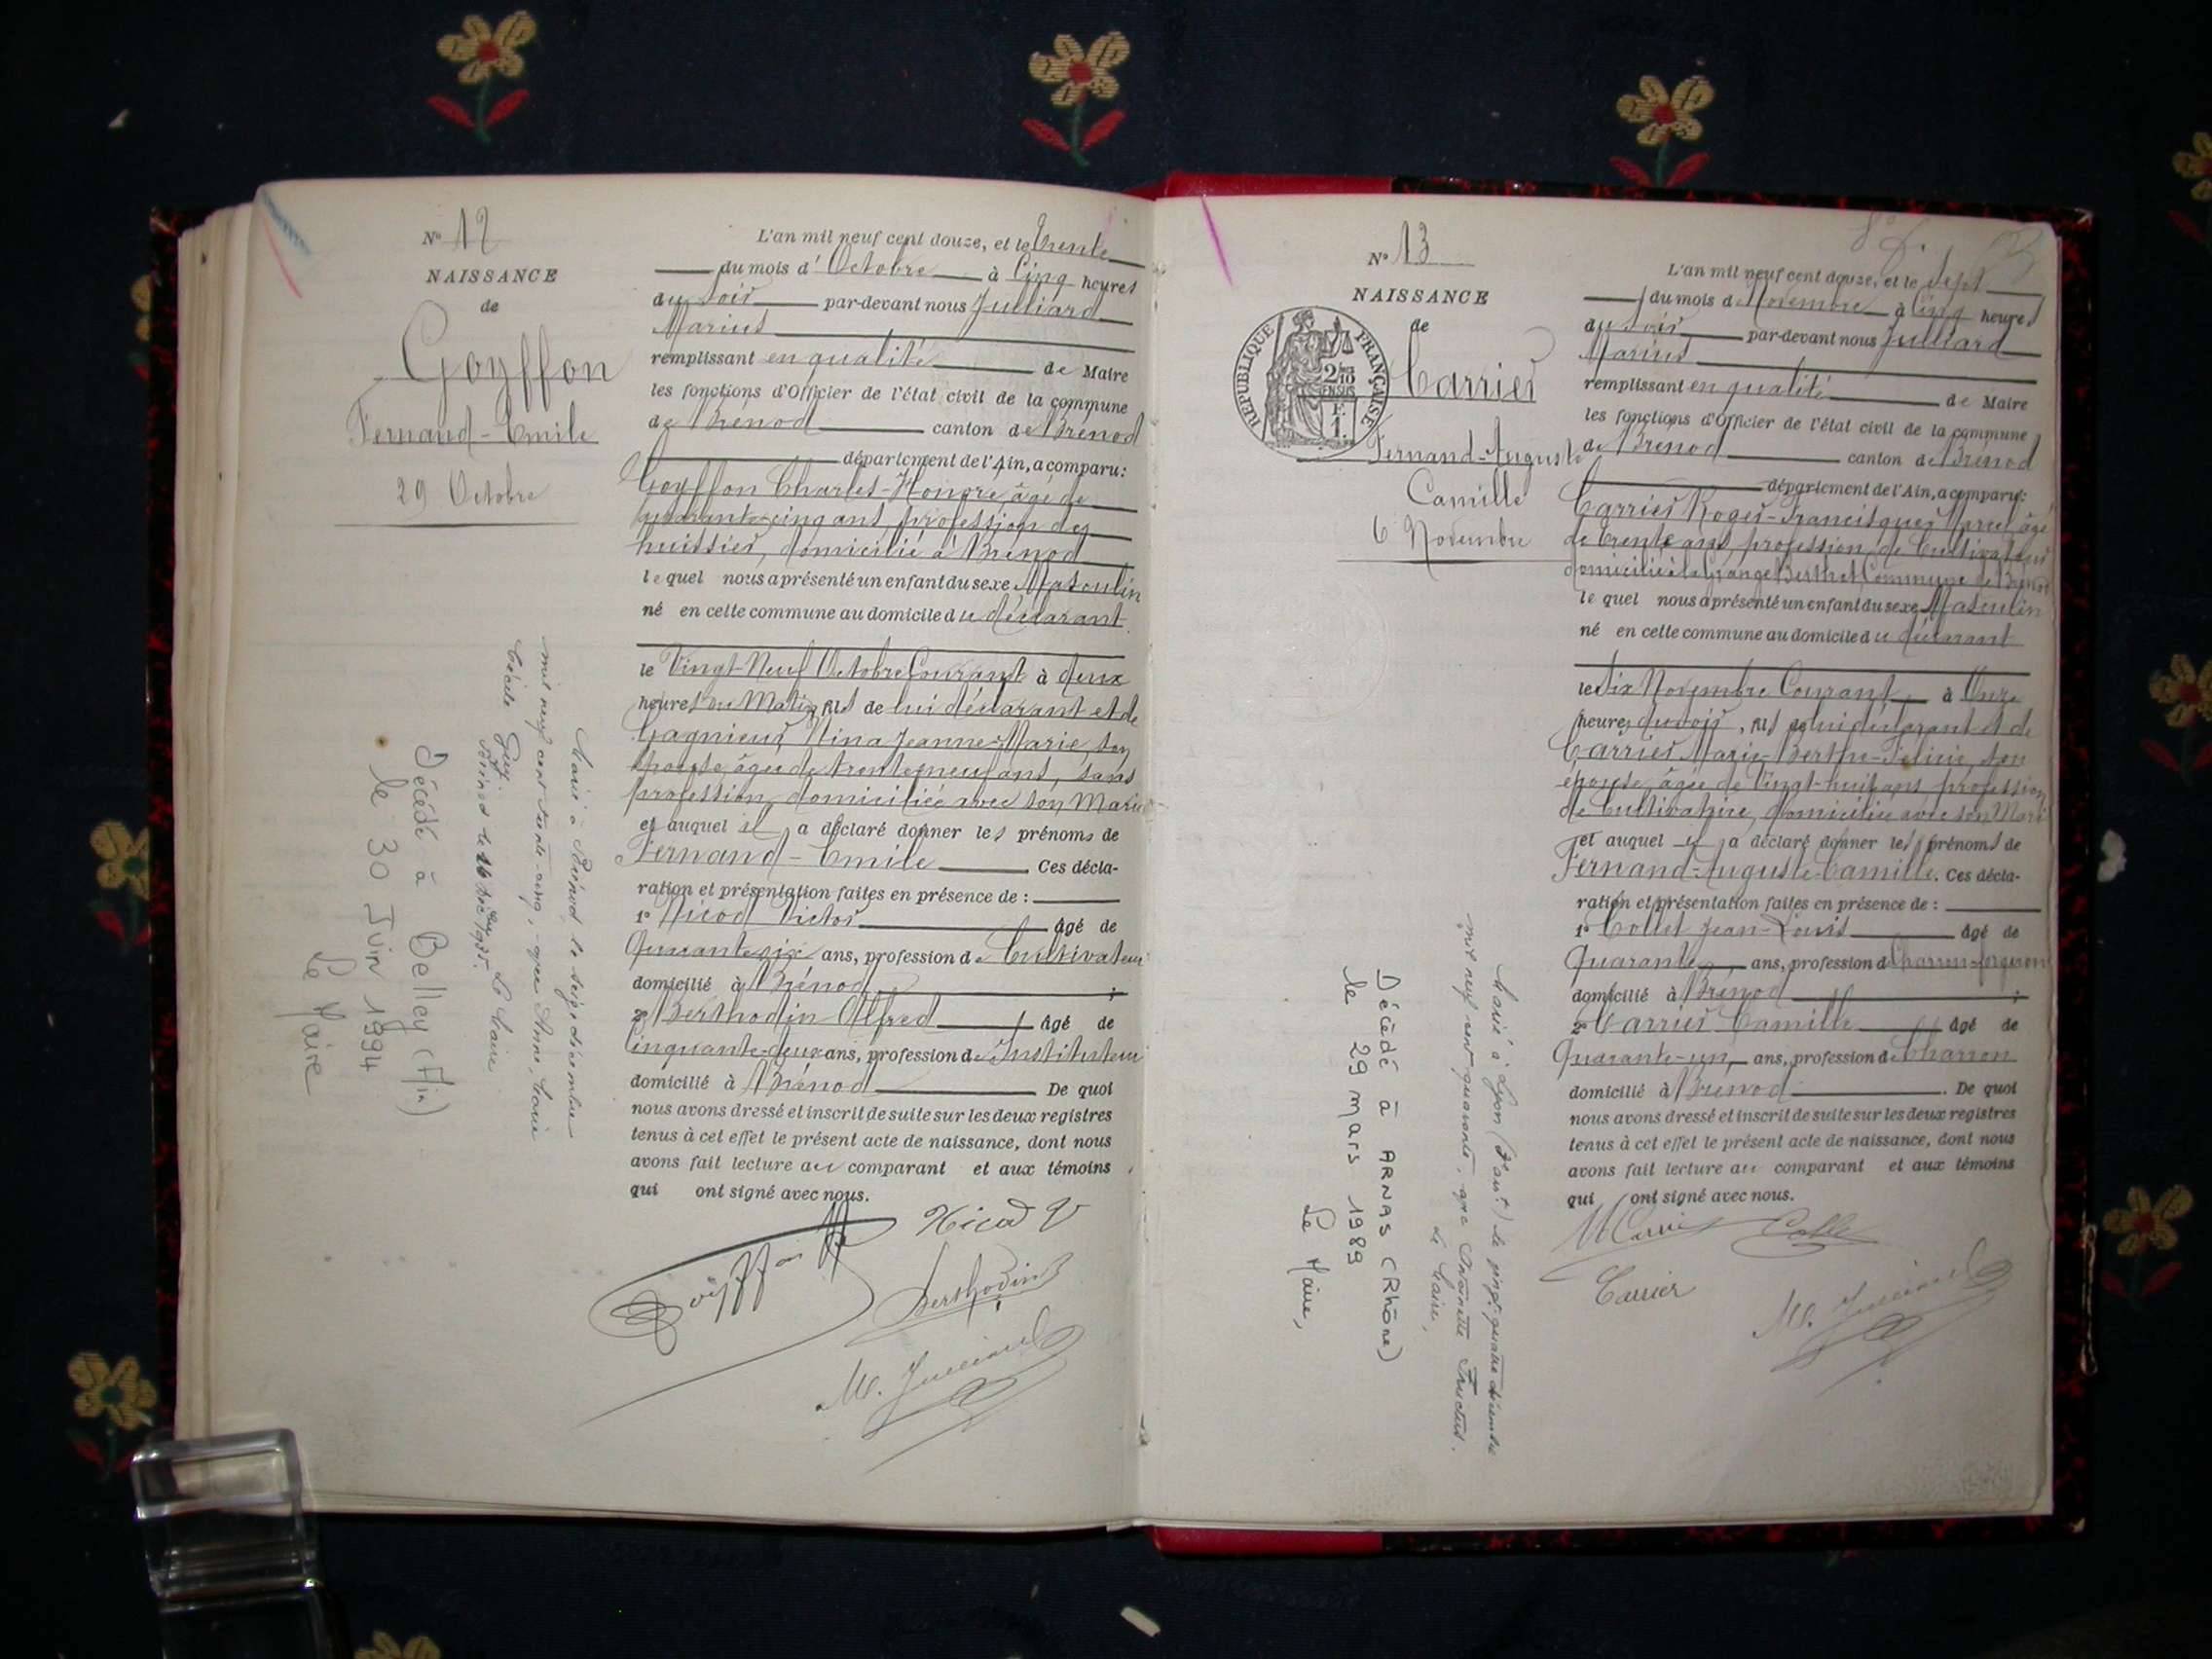 N° 12
NAISSANCE
de
Goyffon
Fernand-Emile
29 Octobre
L'an mil neuf cent douze, et le Trente
du mois d'Octobre à Cinq heures
du Soir par-devant nous Julliard
Marius
remplissant en qualité de Maire
les fonctions d'Officier de l'état civil de la commune
de Brénod canton de Brénod
département de l'Ain, a comparu:
Goyffon Charles-Honoré, âgé de
quarante-cinq ans, profession de
huissier, domicilié à Brénod
lequel nous a présenté un enfant du sexe Masculin
né en cette commune au domicile du déclarant
le Vingt-Neuf Octobre Courant à deux
heures du Matin, fils de lui déclarant et de
Gagnieur Nina Jeanne-Marie, son
épouse, âgée de trente neuf ans, sans
profession, domiciliée avec son Mari
et auquel il a déclaré donner les prénoms de
Fernand-Emile Ces décla-
ration et présentation faites en présence de :
1° Nicod Victor âgé de
Quarante six ans, profession de Cultivateur
domicilié à Brénod ;
2° Berthodin Alfred âgé de
Cinquante-deux ans, profession de Instituteur
domicilié à Brénod De quoi
nous avons dressé et inscrit de suite sur les deux registres
tenus à cet effet le présent acte de naissance, dont nous
avons fait lecture au comparant et aux témoins
qui ont signé avec nous.
Goyffon Nicod V
Berthodin
M. Julliard
Marié à Brénod le seize décembre
mil neuf cent trente-cinq, avec Anne, Marie
Cécile Guy
Brénod le 16 Xbre 1935. Le Maire
Décédé à Belley (Ain)
le 30 Juin 1994
Le Maire
N° 13
NAISSANCE
de
Carrier
Fernand-Auguste
Camille
6 Novembre
REPUBLIQUE FRANÇAISE
2/10
EN SUS
1 F.
L'an mil neuf cent douze, et le Sept
du mois de Novembre à Cinq heures
du Soir par-devant nous Julliard
Marius
remplissant en qualité de Maire
les fonctions d'Officier de l'état civil de la commune
de Brénod canton de Brénod
département de l'Ain, a comparu:
Carrier Roger-Francisque Marcel âgé
de trente ans, profession de Cultivateur
domicilié à la Grange Berthet Commune de Brénod
lequel nous a présenté un enfant du sexe Masculin
né en cette commune au domicile du déclarant
le Six Novembre Courant à Onze
heures du soir, fils de lui déclarant et de
Carrier Marie-Berthe-Félicie, son
épouse, âgée de Vingt-huit ans, profession
de Cultivatrice, domiciliée avec son Mari
et auquel il a déclaré donner les prénoms de
Fernand-Auguste-Camille. Ces décla-
ration et présentation faites en présence de :
1° Collet Jean-Louis âgé de
Quarante ans, profession de Charron-forgeron
domicilié à Brénod ;
2° Carrier Camille âgé de
Quarante-un ans, profession de Charron
domicilié à Brénod. De quoi
nous avons dressé et inscrit de suite sur les deux registres
tenus à cet effet le présent acte de naissance, dont nous
avons fait lecture au comparant et aux témoins
qui ont signé avec nous.
M Carrier Collet
Carrier
M. Julliard
Marié à Lyon le vingt-quatre décembre
mil neuf cent quarante, avec Antoinette Fructus.
Le Maire,
Décédé à ARNAS (Rhône)
le 29 mars 1989
Le Maire,